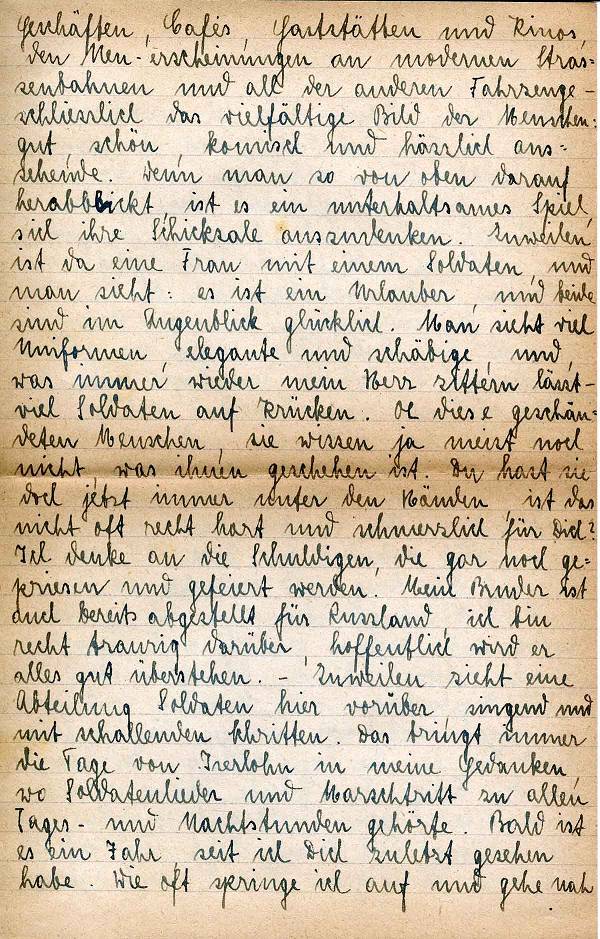 Geschäften, Cafés, Gaststätten und Kinos,
den Neu-erscheinungen an modernen Stras=
senbahnen und all der anderen Fahrzeuge –
schliesslich das vielfältige Bild der Menschen:
gut, schön, komisch und hässlich aus=
sehende. Wenn man so von oben darauf
herabblickt, ist es ein unterhaltsames Spiel,
sich ihre Schicksale auszudenken. Zuweilen
ist da eine Frau mit einem Soldaten, und
man sieht: es ist ein Urlauber, und beide
sind im Augenblick glücklich. Man sieht viel
Uniformen, elegante und schäbige, und,
was immer wieder mein Herz zittern lässt –
viel Soldaten auf Krücken. Oh diese geschän=
deten Menschen, sie wissen ja meist noch
nicht, was ihnen geschehen ist. Du hast sie
doch jetzt immer unter den Händen, ist das
nicht oft recht hart und schmerzlich für Dich?
Ich denke an die Schuldigen, die gar noch ge=
priesen und gefeiert werden. Mein Bruder ist
auch bereits abgestellt für Russland, ich bin
recht traurig darüber, hoffentlich wird er
alles gut überstehen. – Zuweilen zieht eine
Abteilung Soldaten hier vorüber, singend und
mit schallenden Schritten. Das bringt immer
die Tage von Iserlohn in meine Gedanken,
wo Soldatenlieder und Marschtritt zu allen
Tages- und Nachtstunden gehörte. Bald ist
es ein Jahr, seit ich Dich zuletzt gesehen
habe. Wie oft springe ich auf und gehe nah